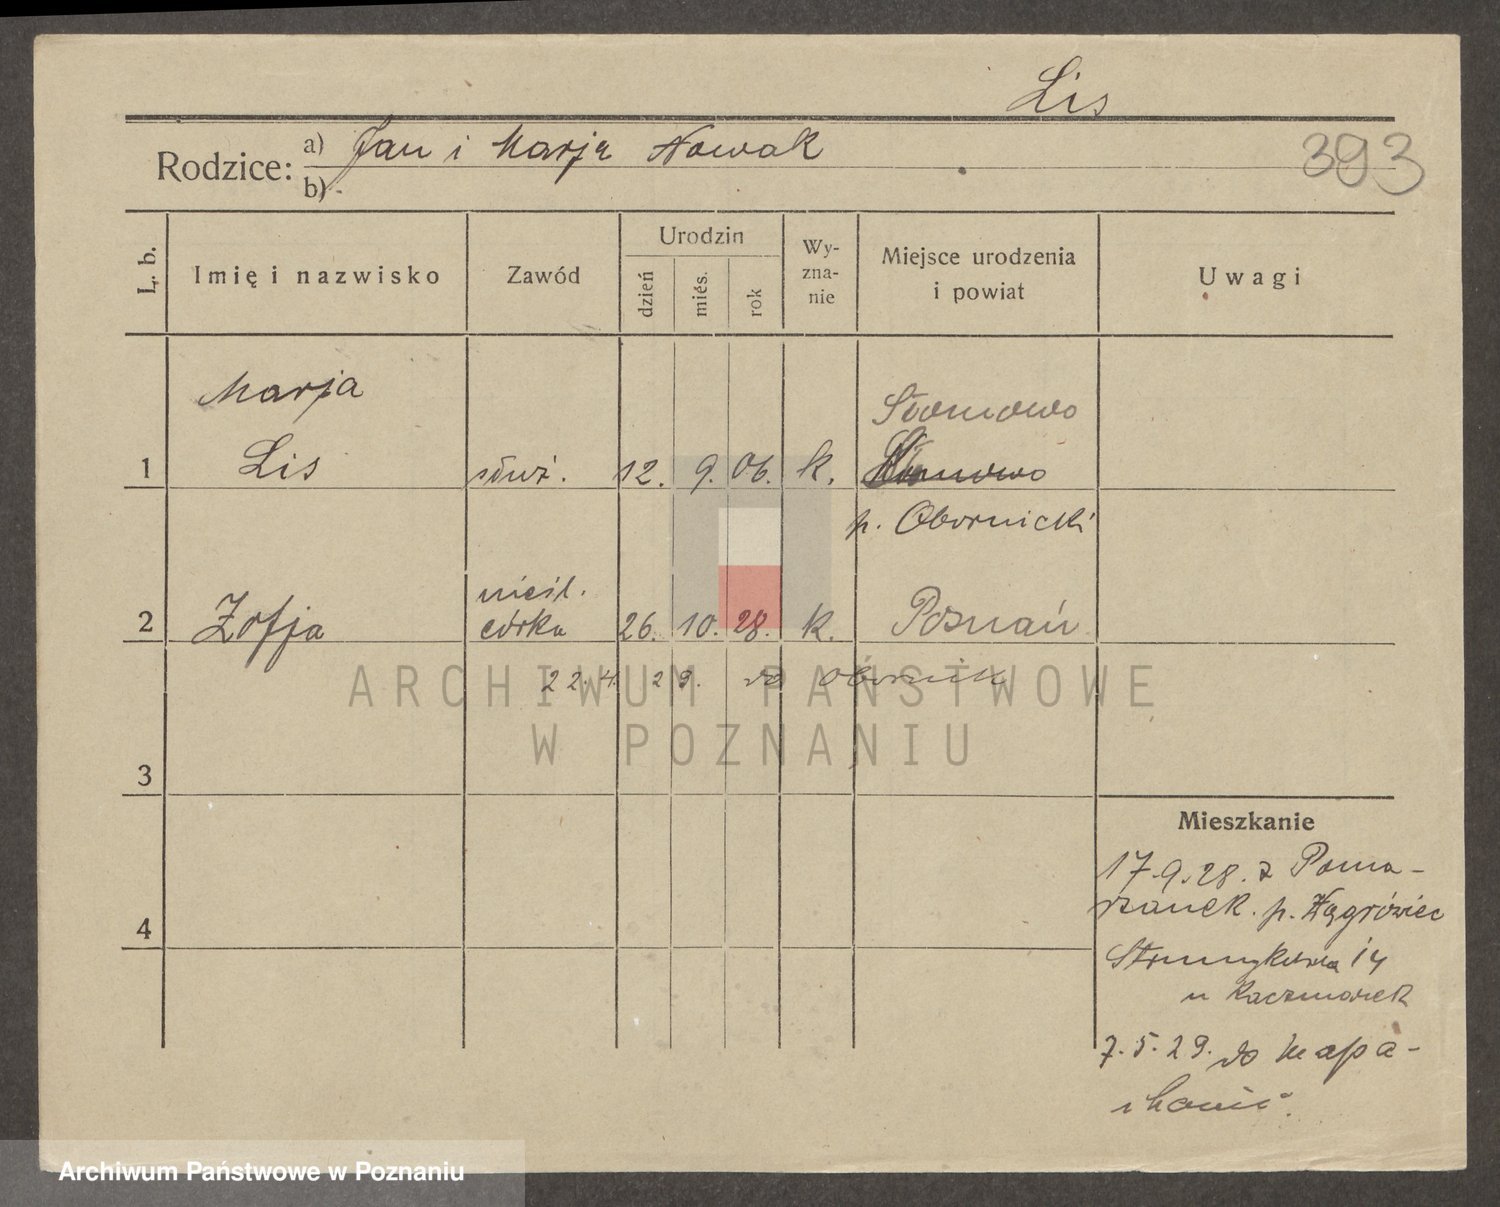 Lis
Rodzice: a) Jan i Marja Nowak
b) -
393
L. b.
Imię i nazwisko
Zawód
Urodzin
dzień
miés.
rok
Wy-
zna-
nie
Miejsce urodzenia
i powiat
Uwagi
Marja
Słomowo
1 Lis służ. 12. 9. 06. k.
p. Obornicki
nieśl.
2 Zofja córka 26. 10. 28. k. Poznań
22. 4. 29. do Obornik
ARCHIWUM PAŃSTWOWE
W POZNANIU
3
Mieszkanie
17.9.28. z Poma-
rzanek. p. Wągrówiec
4
14
u Kaczmarek
7.5.29. do
Archiwum Państwowe w Poznaniu